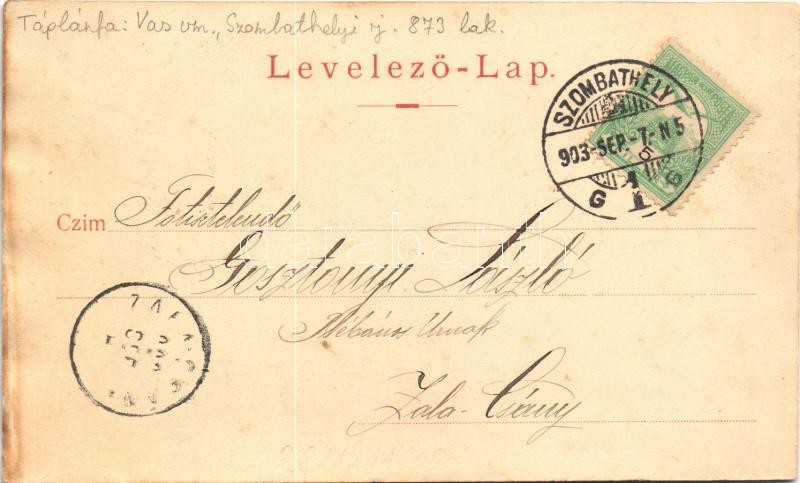 Táplánfa: Vas vm., Szombathelyi j. 873 lak.
Levelező-Lap.
SZOMBATHELY
903-SEP.-7-N5
Czim Főtisztelendő
Gosztonyi László
Plébános Úrnak
Zala-Csány